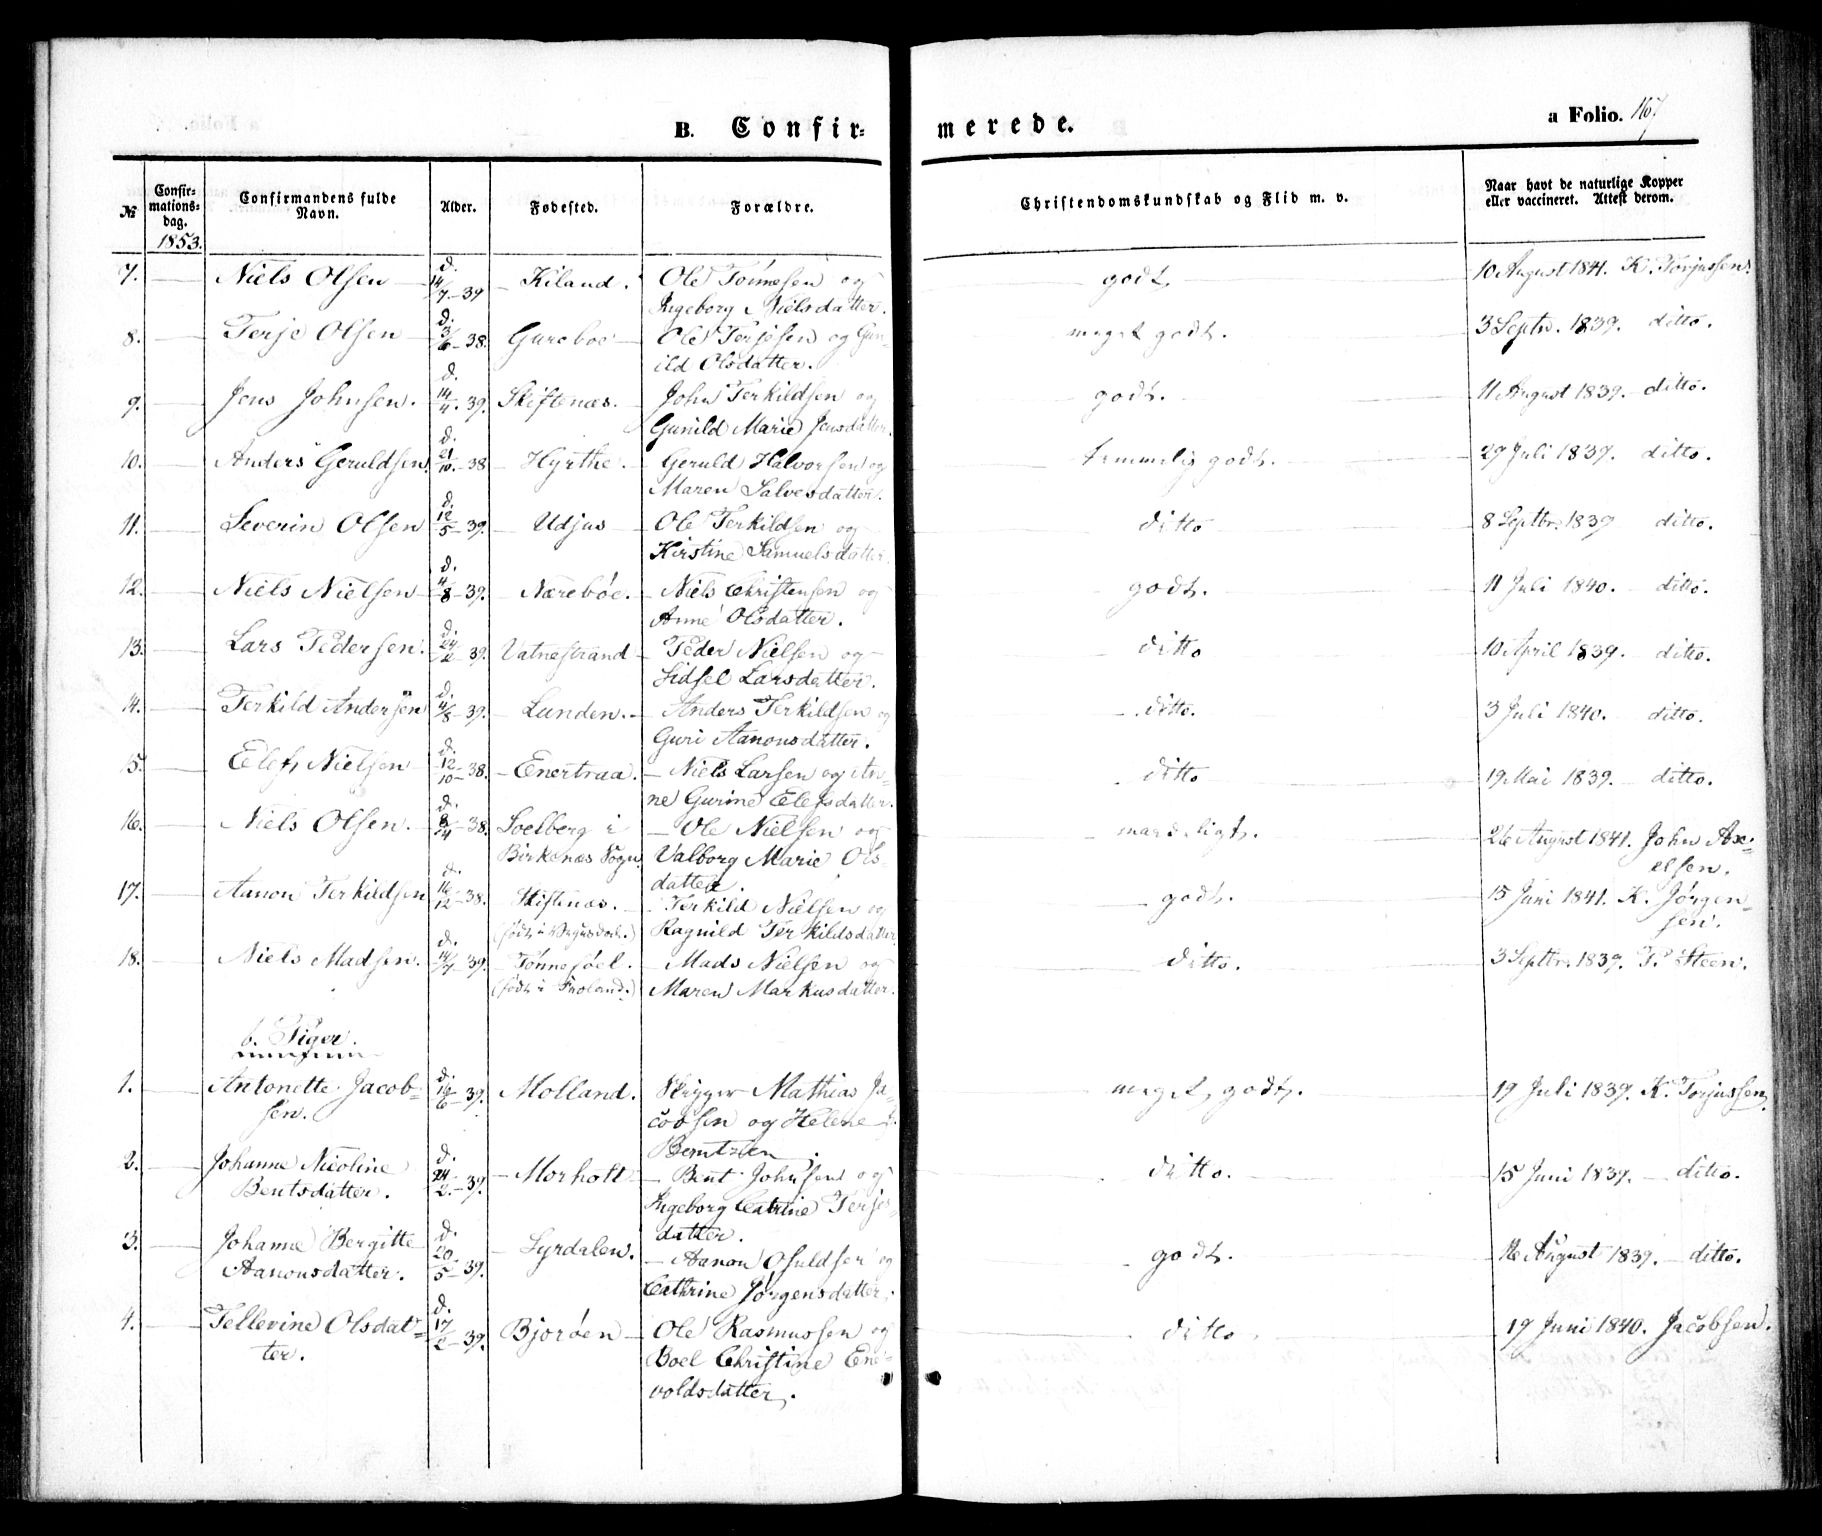 B. Confir- merede. a Folio. 167
№ Confir-mations-dag. 1853. Confirmandens fulde Navn. Alder. Fødested. Forældre. Christendomskundskab og Flid m. v. Naar havt de naturlige Kopper eller vaccineret. Attest derom.
7. Niels Olsen d. 14/7-39 Kiland. Ole Tønnesen og 10 August 1841. K. Torjussen.
Ingeborg Nielsdatter. godt.
8. Terje Olsen d. 3/6-38. Gureboe Ole Terjesen og Gun- meget godt. 3 Septbr. 1839. ditto.
ild Olsdatter.
9. Jens Johnsen. d. 14/4-39. Skiftenæs. John Terkildsen og godt. 11 August 1839. ditto.
Gunild Marie Jensdatter.
10. Anders Geruldsen. d. 21/10-38 Hyrthe. Geruld Halvorsen og temmelig godt. 29 Juli 1839. ditto.
Maren Salvesdatter.
11. Severin Olsen d. 12/5-39. Udjus Ole Terkildsen og ditto 8 Septbr. 1839 ditto.
Kirstine Samuelsdatter.
12. Niels Nielsen d. 4/8-39. Nærebøe. Niels Christensen og godt. 11 Juli 1840. ditto.
Anne Olsdatter.
13. Lars Pedersen. d. 24/2 39. Vatnestrand Peder Nielsen og ditto 10 April 1839. ditto.
Sidsel Larsdatter.
14. Terkild Andersen d. 4/8-39. Lunden. Anders Terkildsen og ditto. 3 Juli 1840. ditto.
Guri Aanonsdatter.
15. Elef Nielsen d. 12/10-38. Enertraa. Niels Larsen og An- ditto 19 Mai 1839. ditto.
ne Gurine Elefsdatter.
16. Niels Olsen. d. 8/4-38. Soelberg i Ole Nielsen og maadeligt. 26 August 1841. John Ax-
Birkenæs Sogn. Valborg Marie Ols- elsen.
datter.
17. Aanon Terkildsen d. 16/12-38. Skiftenæs. Terkild Nielsen og godt. 15 Juni 1841. K. Jørgen-
(født i Vegusdal.) Ragnild Terkildsdatter. sen.
18. Niels Madsen. d. 14/7 39. Tønnesøel. Mads Nielsen og ditto. 3 Septbr. 1839. P. Steen.
(født i Froland.) Maren Markusdatter.
b. Piger.
1. Antonette Jacob- d. 16/6-39. Molland. Skipper Mathias Ja- meget godt. 19 Juli 1839. K. Torjussen
sen. cobsen og Helene
Berntzen.
2. Johanne Nicoline d. 24/2-39. Morholt Bent Johnsen og ditto. 15 Juni 1839. ditto.
Bentsdatter. Ingeborg Catrine Terjes-
datter.
3. Johanne Bergitte d. 20/5-39. Syrdalen. Aanon Osuldsen og godt. 16 August 1839. ditto.
Aanonsdatter. Cathrine Jørgensdatter.
4. Tellevine Olsdat- d. 17/2-39. Bjorøen Ole Rasmussen og ditto. 19 Juni 1840. Jacobsen.
ter. Boel Christine Ene-
voldsdatter.